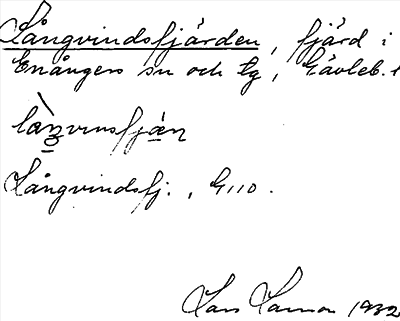 Långvindsfjärden, fjärd i
Enångers sn och tg, Gävleb. l
Långvindsfj., G110.
Lars Larsson 1932